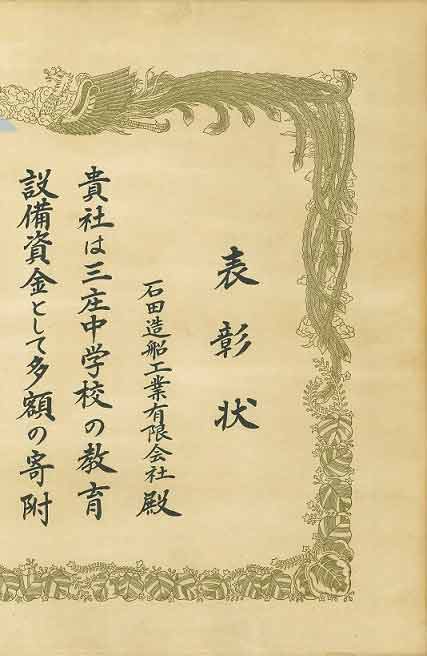 表彰状
石田造船工業有限会社殿
貴社は三庄中学校の教育
設備資金として多額の寄附